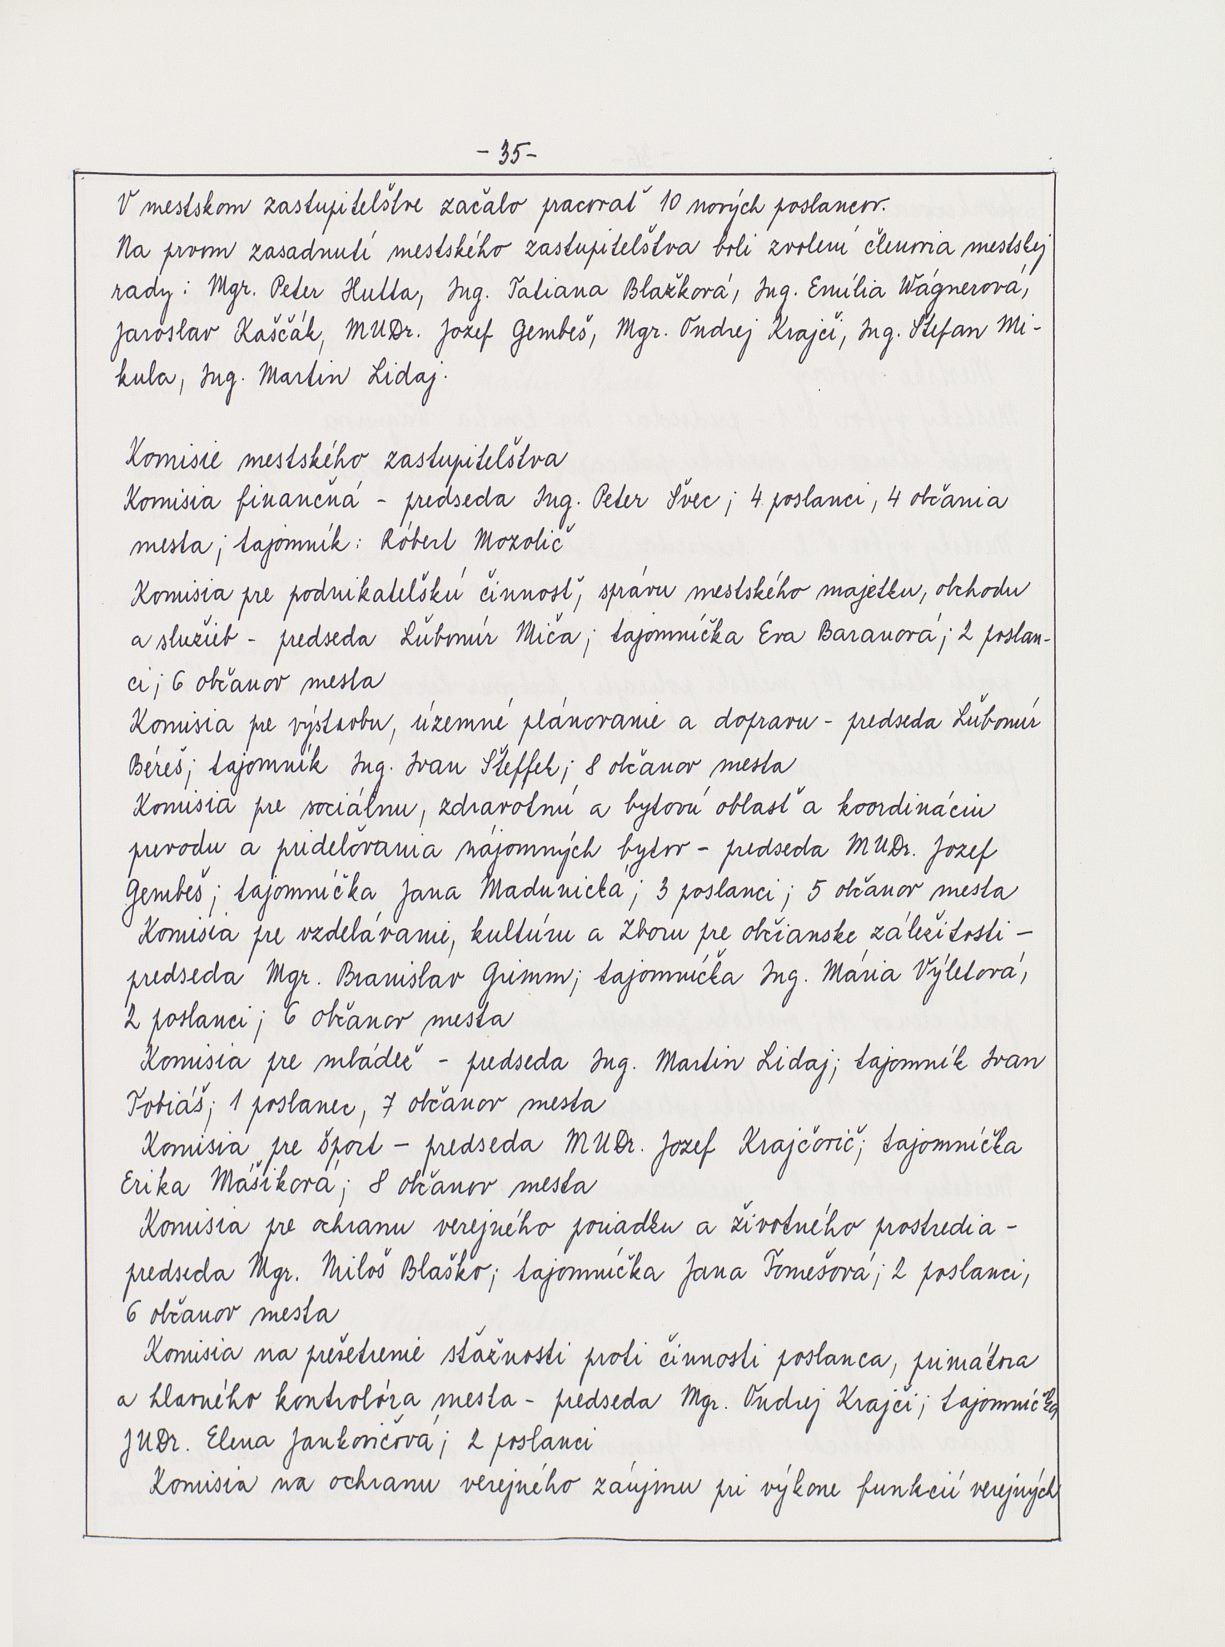 - 35 -
V mestskom zastupiteľstve začalo pracovať 10 nových poslancov.
Na prvom zasadnutí mestského zastupiteľstva boli zvolení členovia mestskej
rady: Mgr. Peter Hutta, Ing. Tatiana Blažková, Ing. Emília Wágnerová,
Jaroslav Kaščák, MUDr. Jozef Gembeš, Mgr. Ondrej Krajči, Ing. Štefan Mi-
kula, Ing. Martin Lidaj.
Komisie mestského zastupiteľstva
Komisia finančná - predseda Ing. Peter Švec; 4 poslanci, 4 občania
mesta; tajomník: Róbert Mozolič
Komisia pre podnikateľskú činnosť, správu mestského majetku, obchodu
a služieb - predseda Ľubomír Miča; tajomníčka Eva Baranová; 2 poslan-
ci; 6 občanov mesta
Komisia pre výstavbu, územné plánovanie a dopravu - predseda Ľubomír
Béreš; tajomník Ing. Ivan Šteffek; 8 občanov mesta
Komisia pre sociálnu, zdravotnú a bytovú oblasť a koordináciu
prevodu a prideľovania nájomných bytov - predseda MUDr. Jozef
Gembeš; tajomníčka Jana Madunická; 3 poslanci; 5 občanov mesta
Komisia pre vzdelávanie, kultúru a Zboru pre občianske záležitosti -
predseda Mgr. Branislav Grimm; tajomníčka Ing. Mária Výletová,
2 poslanci; 6 občanov mesta
Komisia pre mládež - predseda Ing. Martin Lidaj; tajomník Ivan
Tobiáš; 1 poslanec, 7 občanov mesta
Komisia pre šport - predseda MUDr. Jozef Krajčovič; tajomníčka
Erika Mášiková; 8 občanov mesta
Komisia pre ochranu verejného poriadku a životného prostredia -
predseda Mgr. Miloš Blaško; tajomníčka Jana Tomešová; 2 poslanci,
6 občanov mesta
Komisia na prešetrenie sťažnosti proti činnosti poslanca, primátora
a hlavného kontrolóra mesta - predseda Mgr. Ondrej Krajči; tajomníčka
JUDr. Elena Jankovičová; 2 poslanci
Komisia na ochranu verejného záujmu pri výkone funkcií verejných